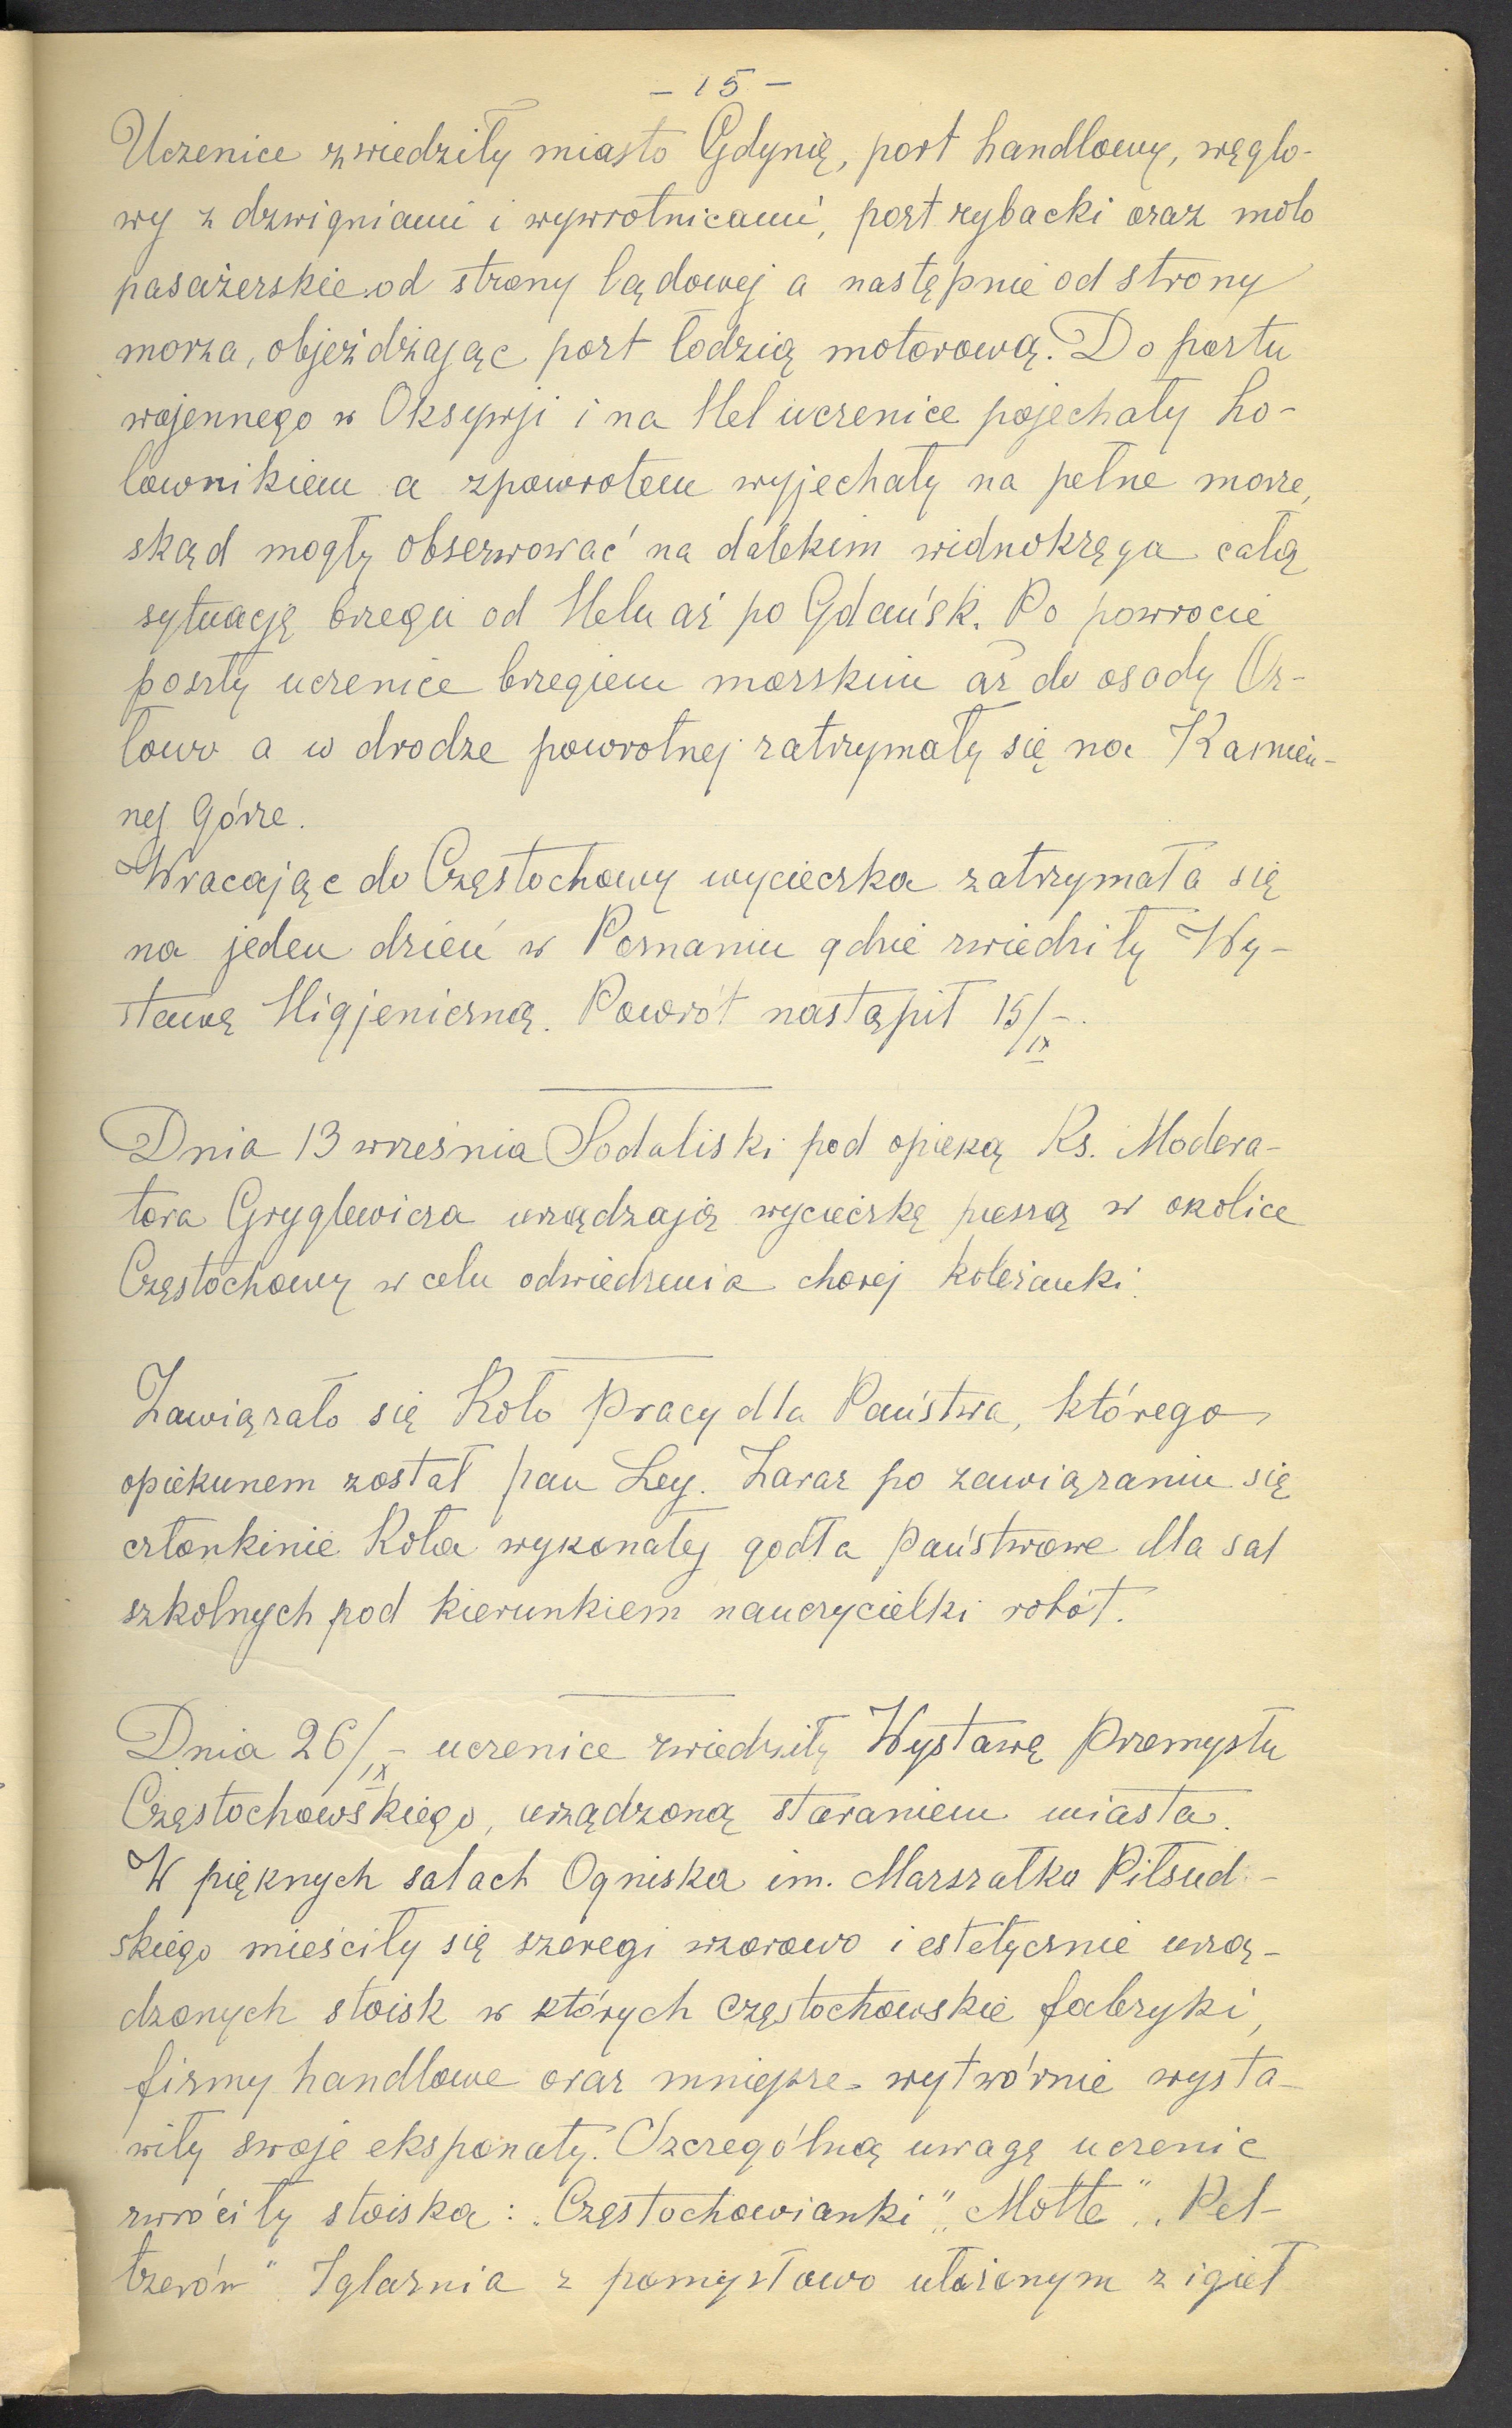 - 15 -
Uczenice zwiedziły miasto Gdynię, port handlowy, węglo-
wy z dzwigniami i wywrotnicami, port rybacki oraz molo
pasażerskie od strony lądowej a następnie od strony
morza, objeżdżając port łodzią motorową. Do portu
wojennego w Oksywji i na Hel uczenice pojechały ho-
lownikiem a zpowrotem wyjechały na pełne morze,
skąd mogły obserwować na dalekim widnokręga całą
sytuację brzegu od Helu aż po Gdańsk. Po powrocie
poszły uczenice brzegiem morskim aż do osady Or-
łowo a w drodze powrotnej zatrzymały się na Kamien-
nej Górze.
Wracając do Częstochowy wycieczka zatrzymała się
na jeden dzień w Poznaniu gdzie zwiedziły Wy-
stawę Higjeniczną. Powrót nastąpił 15/IX-.
Dnia 13 września Sodaliski pod opieką Ks. Modera-
tora Gryglewicza urządzają wycieczkę pieszą w okolice
Częstochowy w celu odwiedzenia chorej koleżanki.
Zawiązało się Koło Pracy dla Państwa, którego
opiekunem został pan Ley. Zaraz po zawiązaniu się
członkinie Koła wykonały godła państwowe dla sal
szkolnych pod kierunkiem nauczycielki robót.
Dnia 26/IX- uczenice zwiedziły Wystawę Przemysłu
Częstochowskiego, urządzoną staraniem miasta.
W pięknych salach Ogniska im. Marszałka Piłsud-
skiego mieściły się szeregi wzorowo i estetycznie urzą-
dzonych stoisk w których częstochowskie fabryki,
firmy handlowe oraz mniejsze wytwórnie wysta-
wiły swoje eksponaty. Szczególną uwagę uczenic
zwróciły stoiska: „Częstochowianki" „Motte" „Pel-
tzerów" Iglarnia z pomysłowo ułożonym z igieł